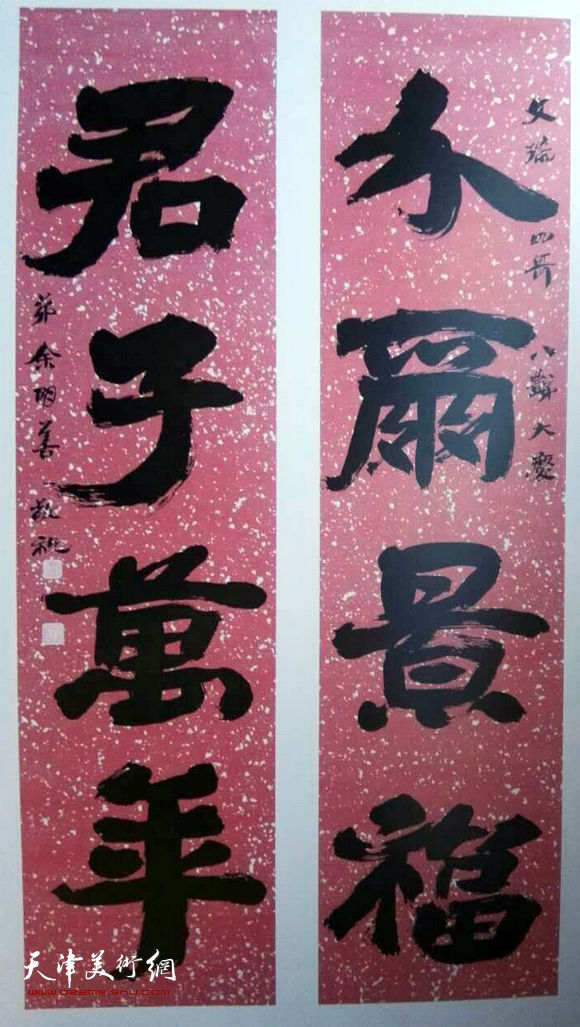 介爾景福
文瑞四哥八齡大慶
君子萬年
弟余明善敬祝
天津美術網
www.022meishu.com